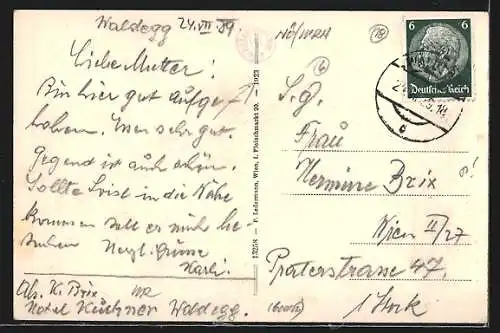 Waldegg 24.VII 39
Liebe Mutter!
Bin hier gut aufge
hoben. Essen sehr gut.
Gegend ist auch schön.
Sollte in die Nähe
kommen soll er mich be
suchen Herzl. Grüsse
Karli.
Abs. K. Brix
Hotel Küchner Waldegg.
13258 - P. Ledermann, Wien, I. Fleischmarkt 20. 1923
NÖ/WRN
18
6
6 6
Deutsches Reich
c
S.g.
Frau
Hermine Brix
Wien II/27
Praterstrasse 47.
I Stock